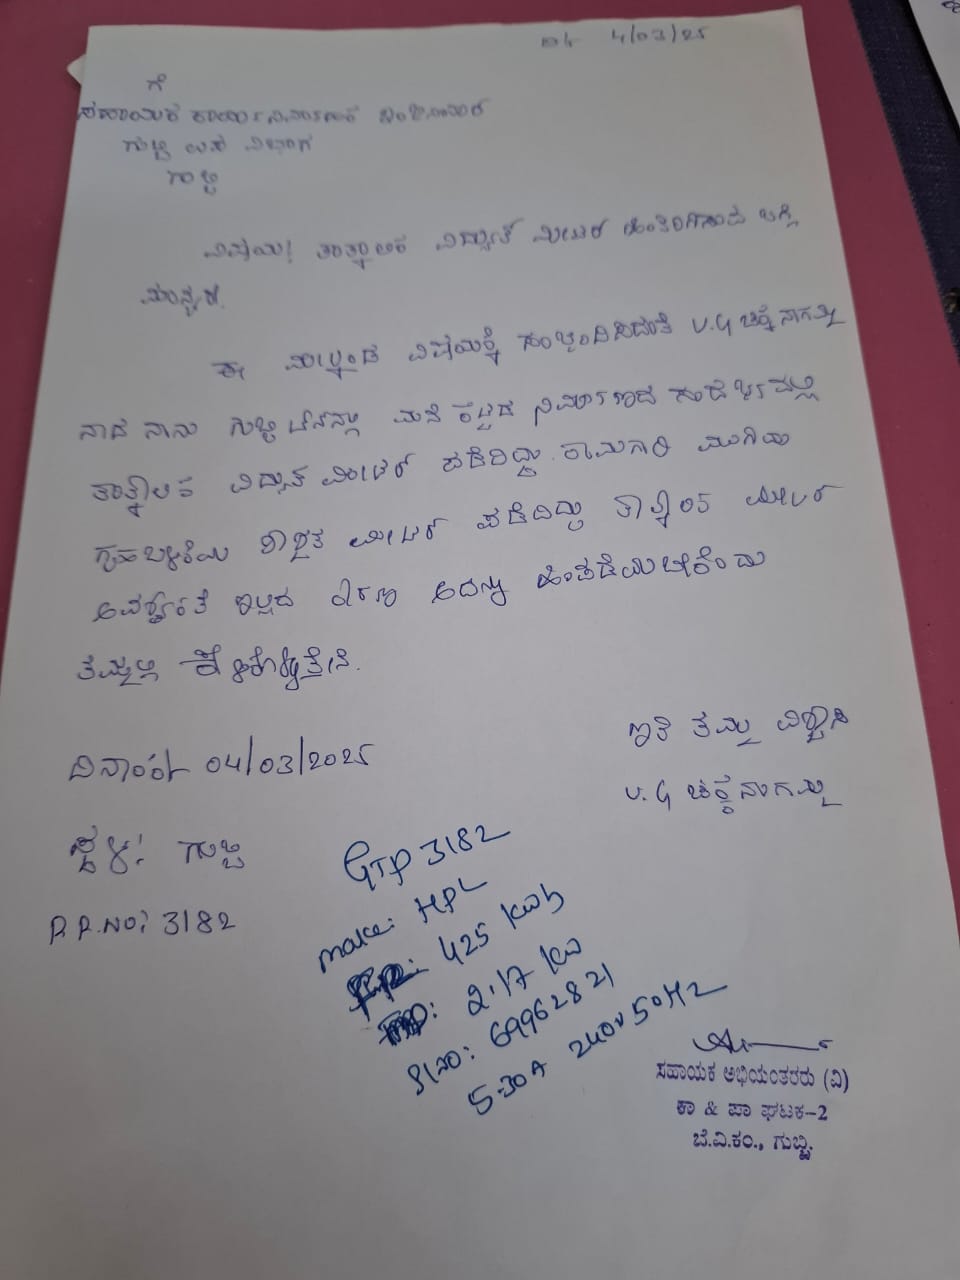 Dt 4/03/25
ಗೆ
ಸಹಾಯಕ ಕಾರ್ಯನಿರ್ವಾಹಕ ಇಂಜಿನಿಯರ್
ಗುಬ್ಬಿ ಉಪ ವಿಭಾಗ
ಗುಬ್ಬಿ
ವಿಷಯ: ತಾತ್ಕಾಲಿಕ ವಿದ್ಯುತ್ ಮೀಟರ್ ಹಿಂತಿರುಗಿಸುವ ಬಗ್ಗೆ
ಮಾನ್ಯರೆ.
ಈ ಮೇಲ್ಕಂಡ ವಿಷಯಕ್ಕೆ ಸಂಬಂದಿಸಿದಂತೆ U.G ಚಿಕ್ಕನಾಗಮ್ಮ
ನಾದ ನಾನು ಗುಬ್ಬಿ ಮನೆ ಕಟ್ಟಡ ನಿರ್ಮಾಣದ ಸಂದರ್ಭದಲ್ಲಿ
ತಾತ್ಕಾಲಿಕ ವಿದ್ಯುತ್ ಮೀಟರ್ ಪಡೆದಿದ್ದು. ಕಾಮಗಾರಿ ಮುಗಿದು
ಗೃಹಬಳಕೆಯ ಶಾಶ್ವತ ಮೀಟರ್ ಪಡೆದಿದ್ದು ತಾತ್ಕಾಲಿಕ ಮೀಟರ್
ಅವಶ್ಯಕತೆ ಇಲ್ಲದ ಕಾರಣ ಅದನ್ನು ಹಿಂಪಡೆಯಬೇಕೆಂದು
ತಮ್ಮಲ್ಲಿ ಕೇಳಿಕೊಳ್ಳುತ್ತೇನೆ.
ಇತಿ ತಮ್ಮ ವಿಶ್ವಾಸಿ
ದಿನಾಂಕ 04/03/2025
U.G ಚಿಕ್ಕನಾಗಮ್ಮ
ಸ್ಥಳ: ಗುಬ್ಬಿ
R.R.NO: 3182
GTP 3182
make: HPL
425 Kwh
2.17 Kw
Sl no: 69962821
5-30A 240V 50Hz
ಸಹಾಯಕ ಅಭಿಯಂತರರು (ವಿ)
ಕಾ & ಪಾ ಘಟಕ-2
ಬೆ.ವಿ.ಕಂ., ಗುಬ್ಬಿ.